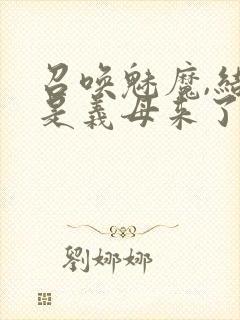 召唤魅魔,结
是义母来了
劉娜娜